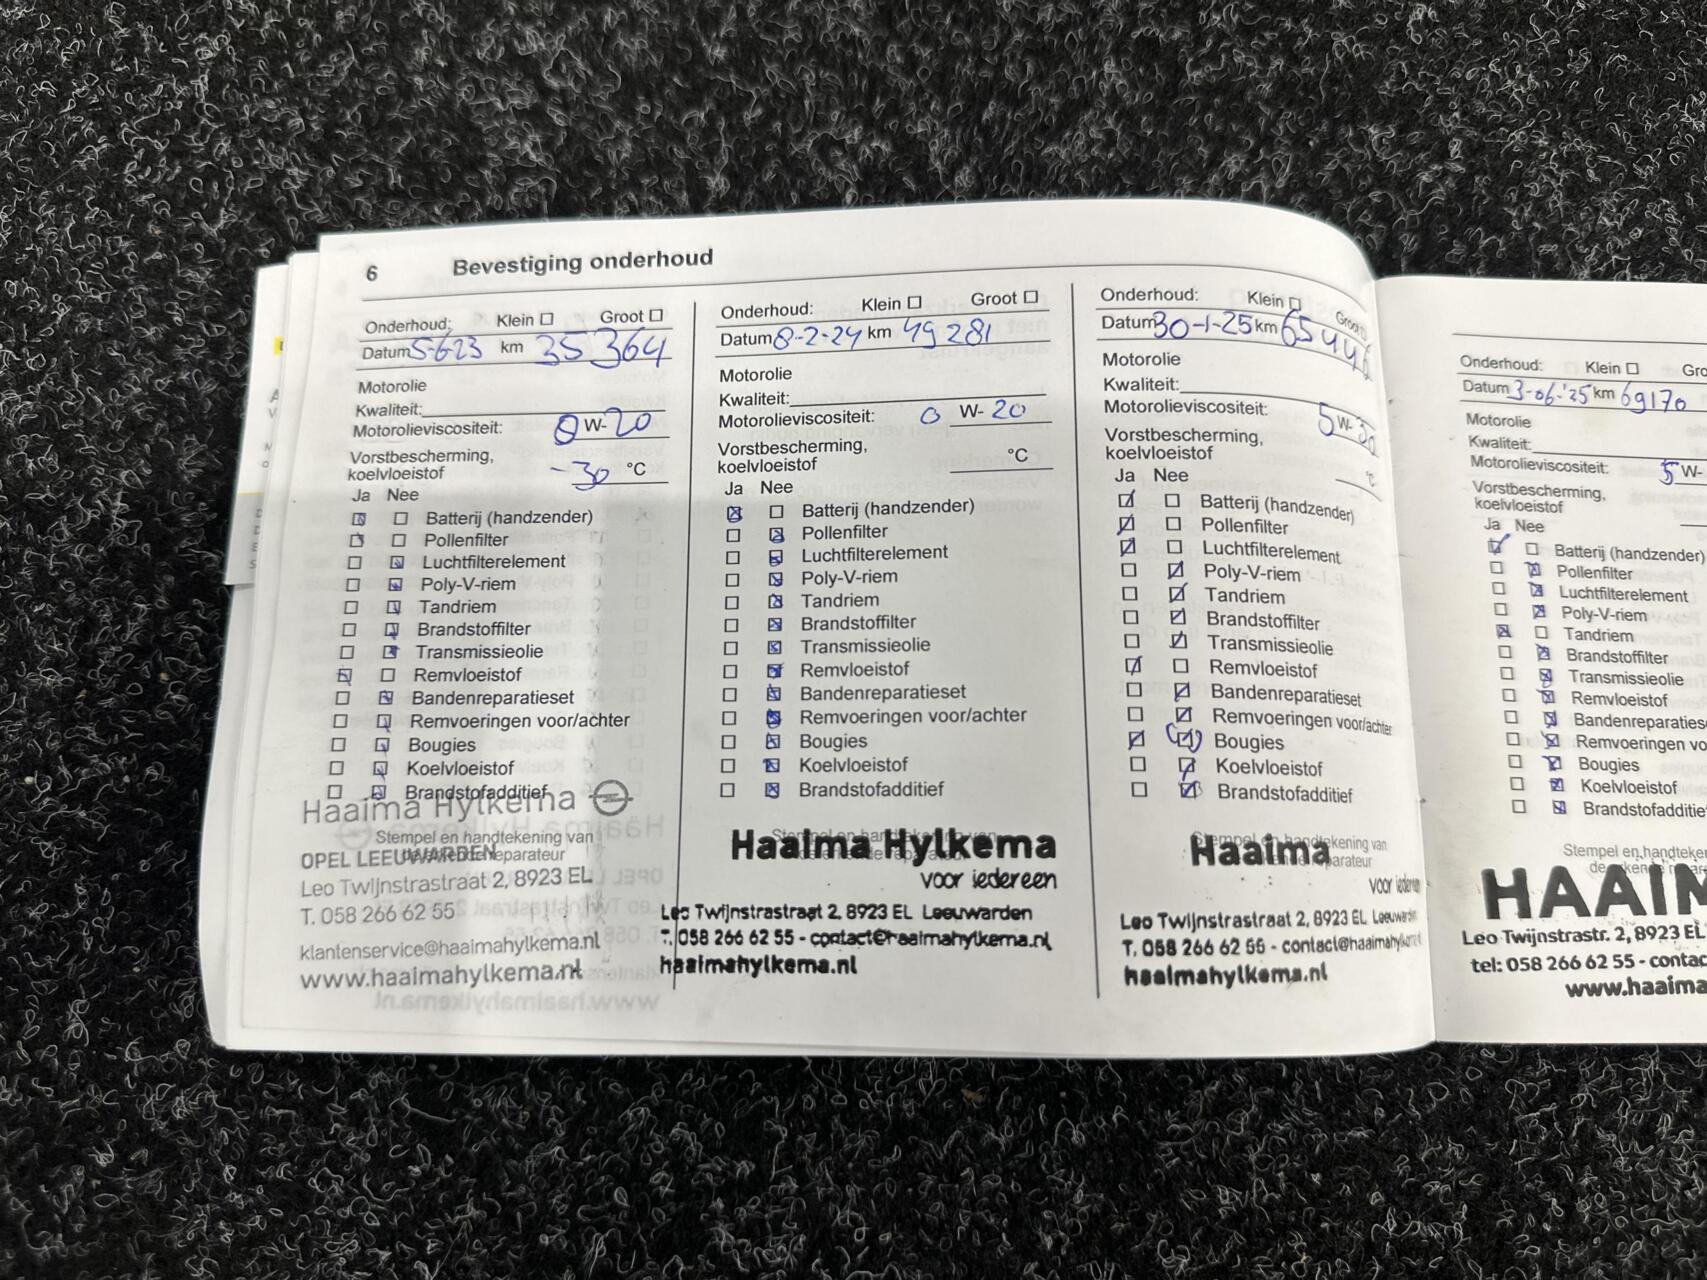 6 Bevestiging onderhoud
Onderhoud: Klein Groot
Datum 5-6-23 km 35 364
Motorolie
Kwaliteit:
Motorolieviscositeit: 0 W- 20
Vorstbescherming,
koelvloeistof -30 °C
Ja Nee
Batterij (handzender)
Pollenfilter
Luchtfilterelement
Poly-V-riem
Tandriem
Brandstoffilter
Transmissieolie
Remvloeistof
Bandenreparatieset
Remvoeringen voor/achter
Bougies
Koelvloeistof
Brandstofadditief
Haaima Hylkema
Stempel en handtekening van
reparateur
OPEL LEEUWARDEN
Leo Twijnstrastraat 2, 8923 EL
T. 058 266 62 55
klantenservice@haaimahylkema.nl
www.haaimahylkema.nl
Onderhoud: Klein Groot
Datum 8-2-24 km 49 281
Motorolie
Kwaliteit:
Motorolieviscositeit: 0 W- 20
Vorstbescherming,
koelvloeistof °C
Ja Nee
Batterij (handzender)
Pollenfilter
Luchtfilterelement
Poly-V-riem
Tandriem
Brandstoffilter
Transmissieolie
Remvloeistof
Bandenreparatieset
Remvoeringen voor/achter
Bougies
Koelvloeistof
Brandstofadditief
Haaima Hylkema
voor iedereen
Leo Twijnstrastraat 2, 8923 EL Leeuwarden
T. 058 266 62 55 - contact@haaimahylkema.nl
haaimahylkema.nl
Onderhoud: Klein Groot
Datum 30-1-25 km 65 446
Motorolie
Kwaliteit:
Motorolieviscositeit: 5 W- 30
Vorstbescherming,
koelvloeistof °C
Ja Nee
Batterij (handzender)
Pollenfilter
Luchtfilterelement
Poly-V-riem
Tandriem
Brandstoffilter
Transmissieolie
Remvloeistof
Bandenreparatieset
Remvoeringen voor/achter
Bougies
Koelvloeistof
Brandstofadditief
Stempel en handtekening van
reparateur
Haaima
voor iedereen
Leo Twijnstrastraat 2, 8923 EL Leeuwarden
T. 058 266 62 55 - contact@haaimahylkema.nl
haaimahylkema.nl
Onderhoud: Klein Gro
Datum 3-06-'25 km 69170
Motorolie
Kwaliteit:
Motorolieviscositeit: 5 W-
Vorstbescherming,
koelvloeistof
Ja Nee
Batterij (handzender)
Pollenfilter
Luchtfilterelement
Poly-V-riem
Tandriem
Brandstoffilter
Transmissieolie
Remvloeistof
Bandenreparaties
Remvoeringen vo
Bougies
Koelvloeistof
Brandstofadditie
Stempel en handteken
HAAIM
Leo Twijnstrastr. 2, 8923 EL
tel: 058 266 62 55 - contac
www.haaima